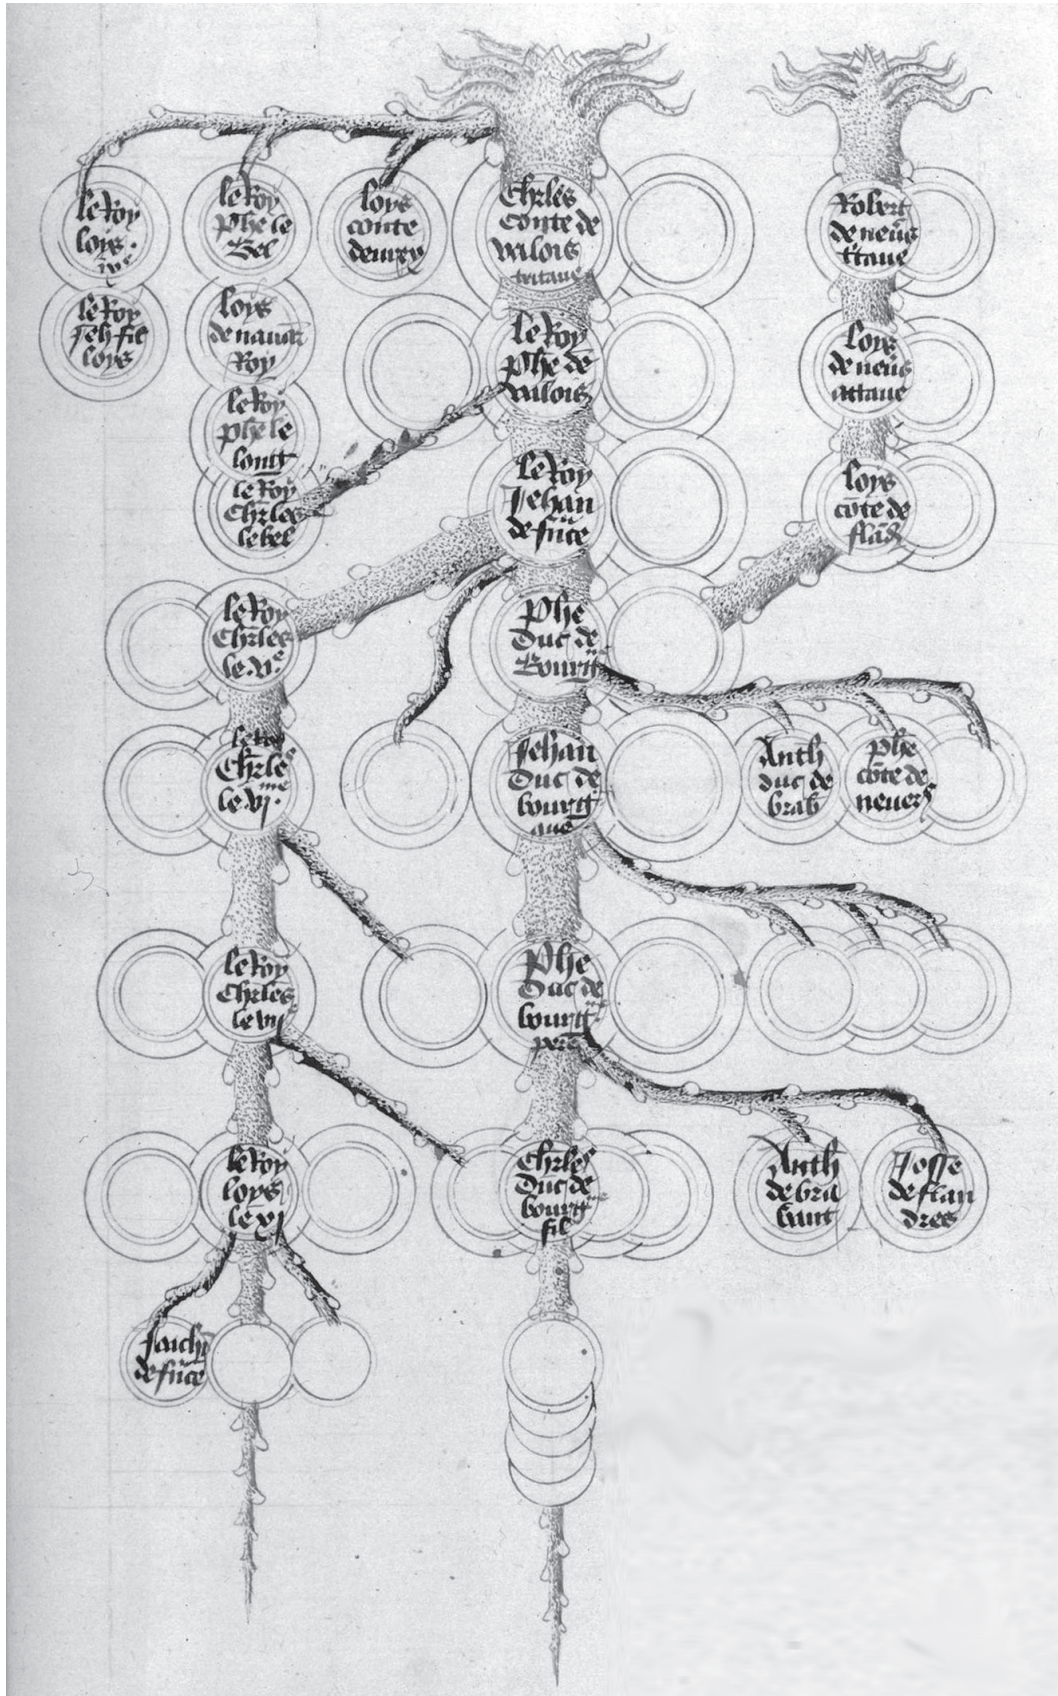 le Roy
loys.
le Roy
Phe le
Bel
loys
conte
Chrles
Conte de
valois
tritaue
Robert
de neus
ttaue
le Roy
Jeh fil
loys
loys
de nauar
Roy
le Roy
Phe de
valois
loys
de neus
attaue
le Roy
phe le
long
le Roy
Chrles
le bel
le Roy
Jehan
de fnce
loys
cote de
flad
le Roy
Chrles
le .v.e
Phe
Duc de
Bourg
le Roy
Chrles
le vj.
Jehan
Duc de
bourg
gne
Anth
duc de
brab
Phe
cote de
neuers
le Roy
Chrles
le vij
Phe
Duc de
bourg
pere
le Roy
loys
le xj
Chrles
Duc de
bourg
fil
Anth
de bra
bant
Josse
de flan
dres
de fnce